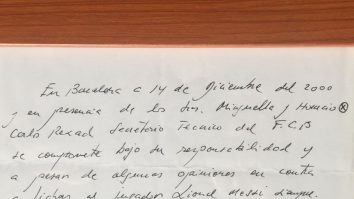 En Barcelona a 14 de Diciembre del 2000
y en presencia de los Srs. Minguella y Horacio
Carlos Rexach Secretario Tecnico del F.C.B
se compromete bajo su responsabilidad y
a pesar de algunas opiniones en contra
a fichar al jugador Lionel Messi siempre